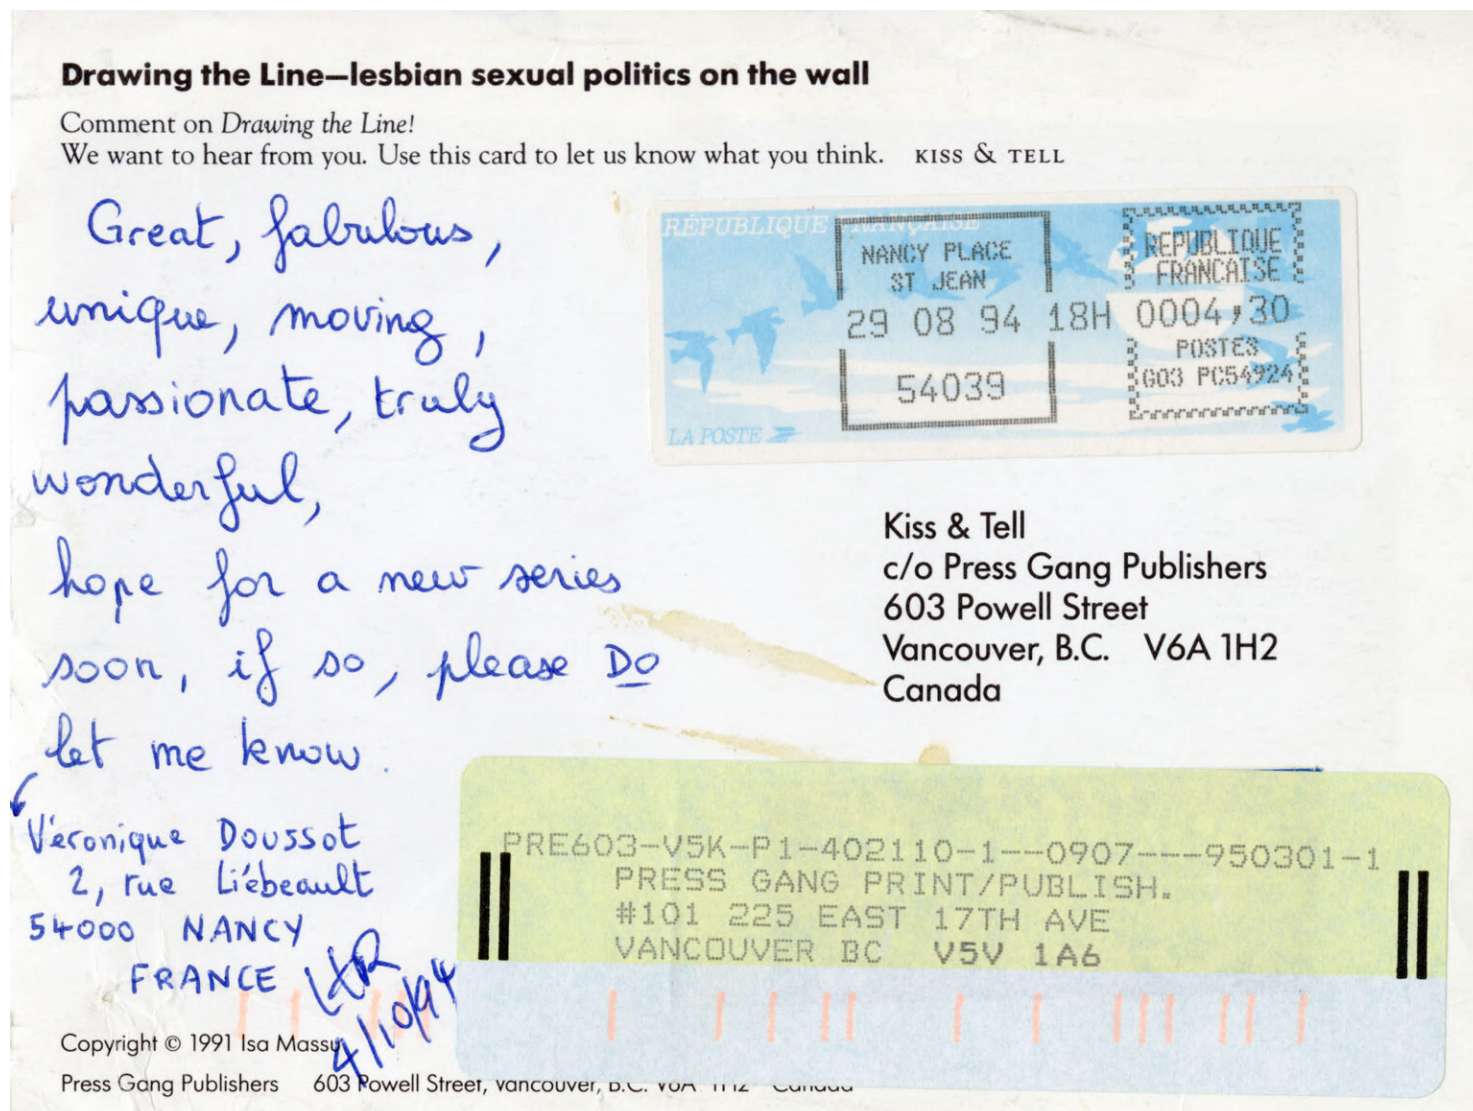 Drawing the Line—lesbian sexual politics on the wall
Comment on Drawing the Line!
We want to hear from you. Use this card to let us know what you think. KISS & TELL
Great, fabulous,
unique, moving,
passionate, truly
wonderful,
hope for a new series
soon, if so, please Do
let me know.
Véronique Doussot
2, rue Liébeault
54000 NANCY
FRANCE
4/10/94
RÉPUBLIQUE FRANÇAISE
NANCY PLACE
ST JEAN
29 08 94 18H
54039
LA POSTE
REPUBLIQUE
FRANCAISE
0004,30
POSTES
G03 PC54924
Kiss & Tell
c/o Press Gang Publishers
603 Powell Street
Vancouver, B.C. V6A 1H2
Canada
PRE603-V5K-P1-402110-1--0907---950301-1
PRESS GANG PRINT/PUBLISH.
#101 225 EAST 17TH AVE
VANCOUVER BC V5V 1A6
Copyright © 1991 Isa Massu
Press Gang Publishers 603 Powell Street, Vancouver, B.C. V6A 1H2 Canada